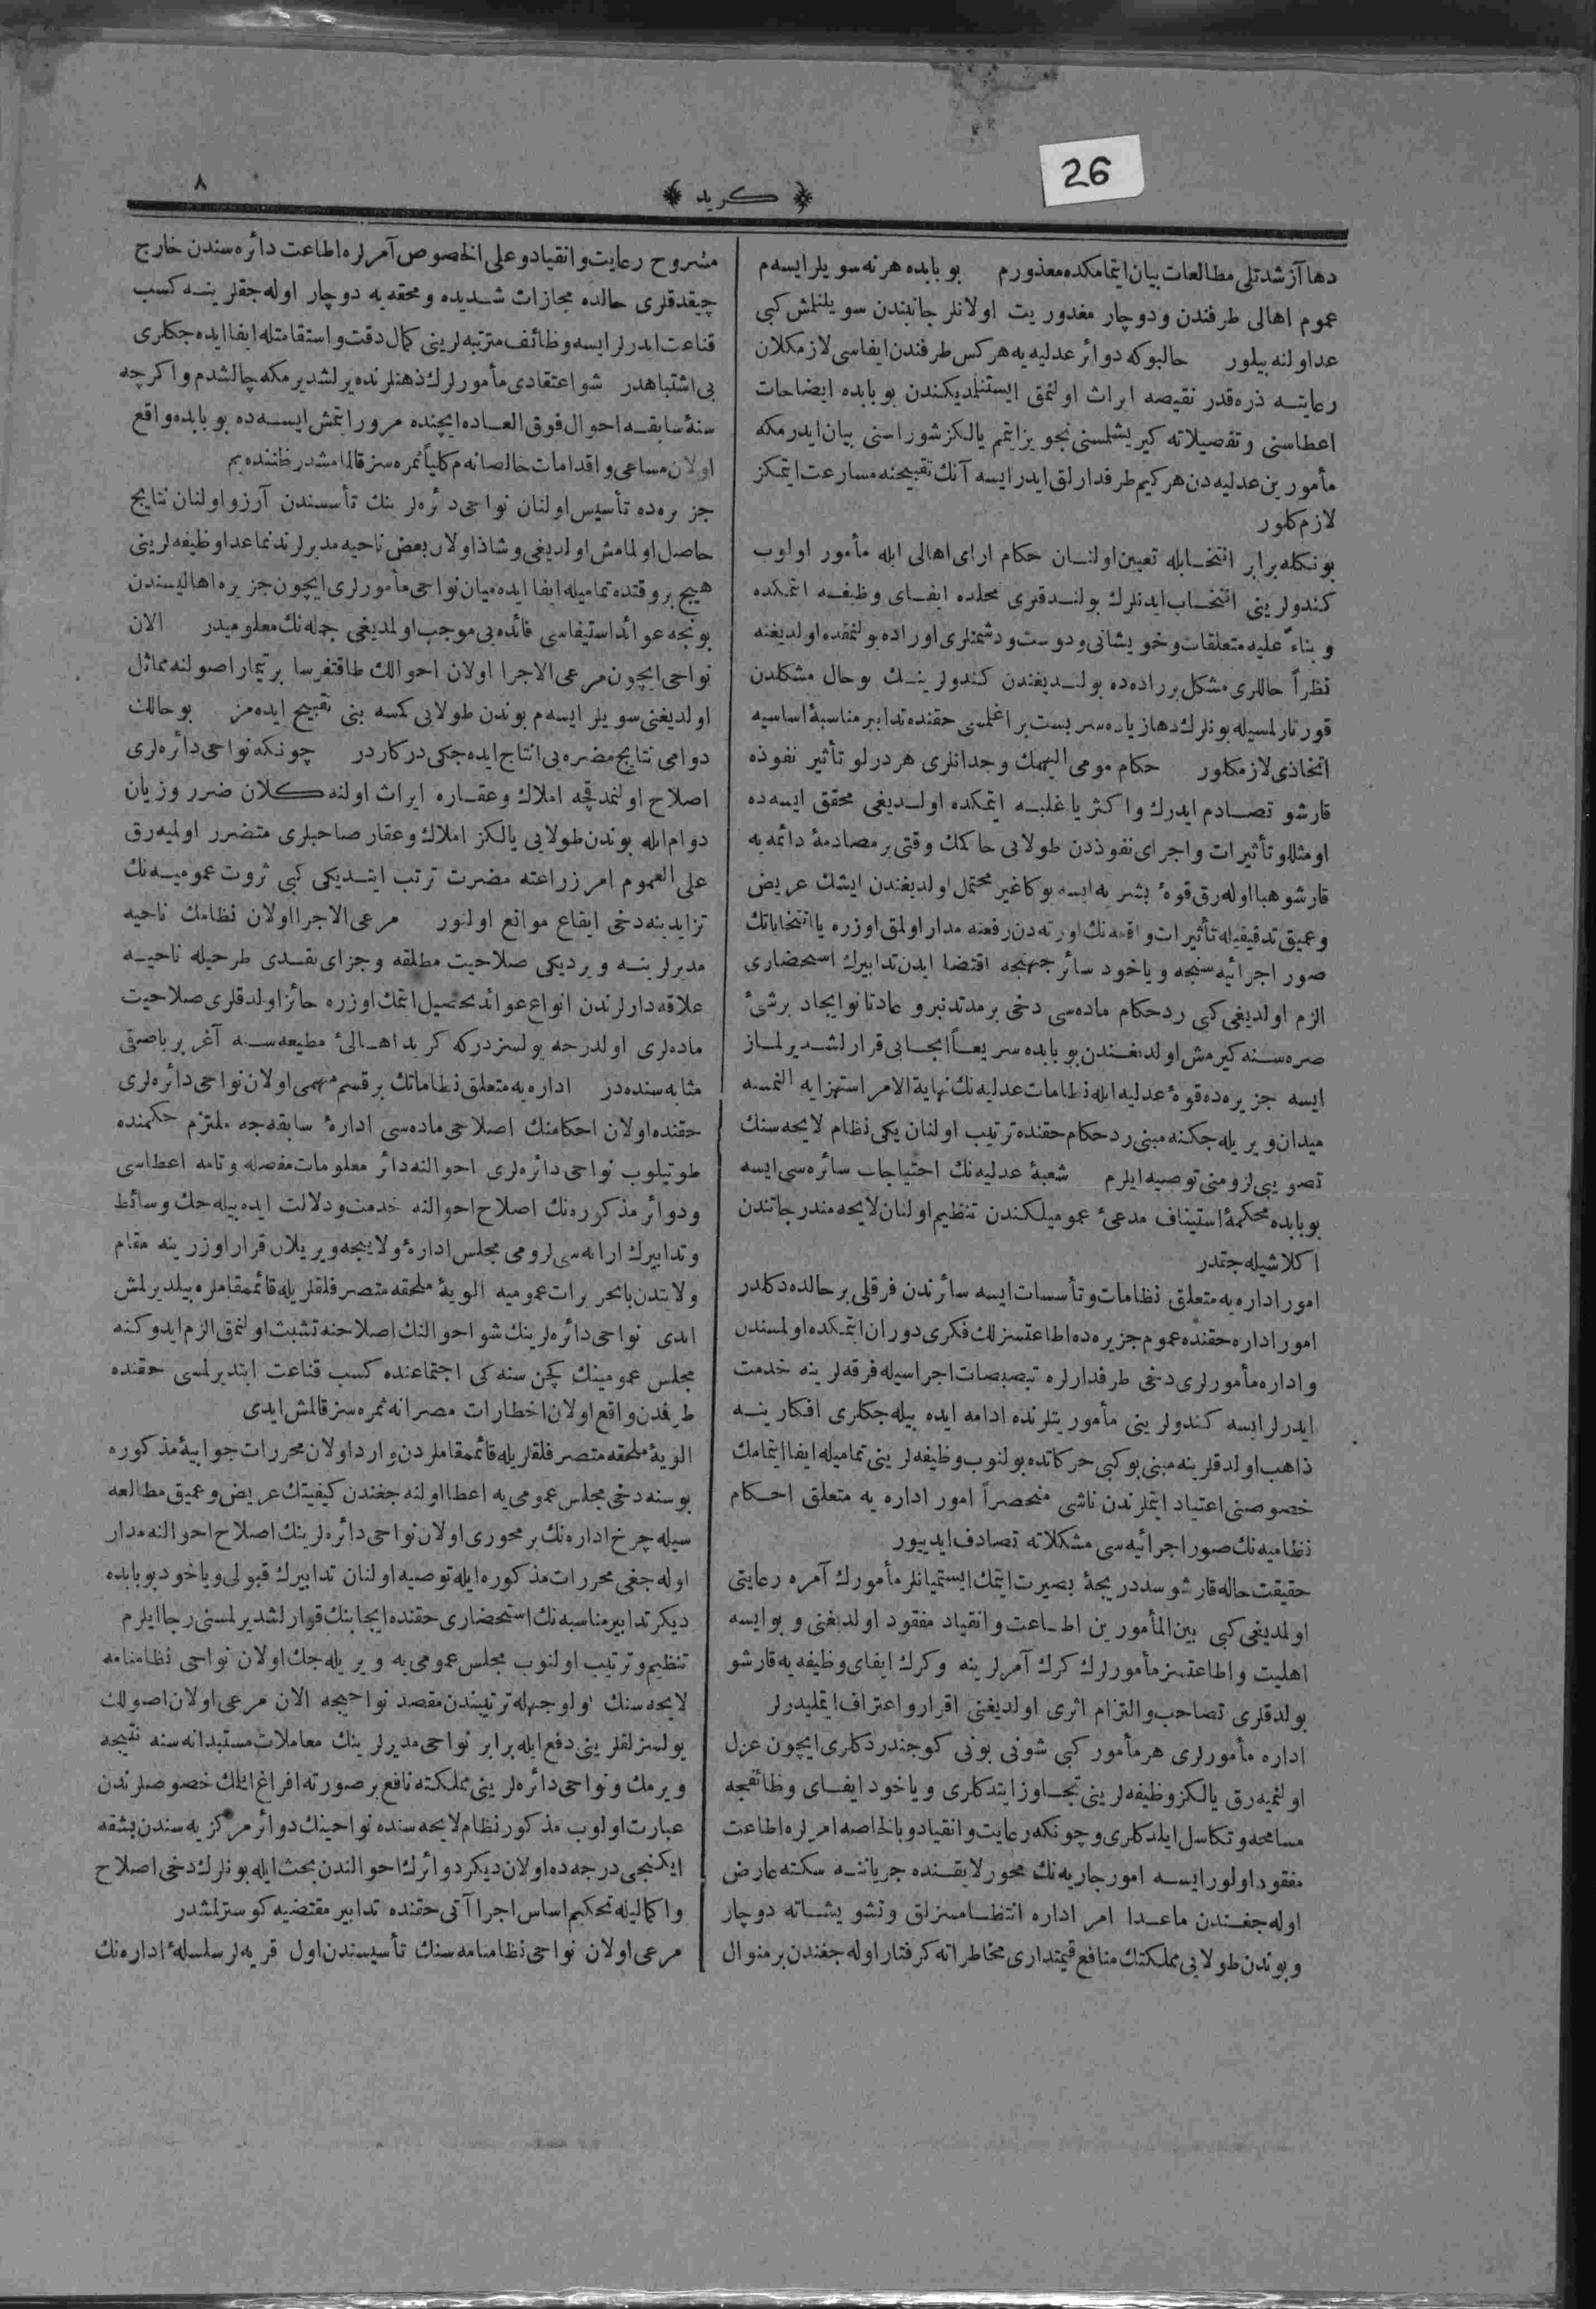 26
﴿ كريد ﴾
٨
دها آز شدتلى مطالعات بيان ايتمامكده معذورم بو بابده هر نه سويلر ايسه‌م
عموم اهالى طرفندن و دوچار مغدوريت اولانلر جانبندن سويلنلمش كبى
عد اولنه بيلور حالبوكه دوائر عدليه يه هركس طرفندن ايفاسى لازمكلان
رعايتــه ذره قدر نقيصه ايراث اولنمق ايستنلمديكندن بو بابده ايضاحات
اعطاسنى و تفصيلاته كيريشلمسنى تجويز ايتميم يالكز شوراسنى بيان ايدرمكه
مأمورين عدليه دن هر كيم طرفدارلق ايدر ايسه آنك تقبيحنه مسارعت ايتمكز
لازم كلور
بونكله برابر انتخــابله تعيين اولنــان حكام اراى اهالى ايله مأمور اولوب
كندولرينى انتخــاب ايدنلرك بولنــدقلرى محلده ايفــاى وظيفــه اتمكده
و بناءً عليه متعلقات و خويشانى و دوست و دشمنلرى اوراده بولنمقده اولديغنه
نظراً حاللرى مشكل بر راده‌ده بولنــديغندن كندولرينــك بو حال مشكلدن
قورتارلمسيله بونلرك دها زياده سربست براغلمسى حقنده تدابير مناسبۀ اساسيه
اتخاذى لازمكلور حكام مومى اليهمك وجدانلرى هر درلو تأثير نفوذه
قارشو تصــادم ايدرك و اكثريا غلبــه ايتمكده اولــديغى محقق ايسه ده
او مثللو تأثيرات و اجراى نفوذدن طولايى حاكمك وقتى بر مصادمۀ دائمه يه
قارشو هبا اوله رق قوۀ بشريه ايسه بوكا غير محتمل اولديغندن ايشك عريض
و عميق تدقيقيله تأثيرات واقعه نك اورته دن رفعنه مدار اولمق اوزره يا انتخاباتك
صور اجرائيه سنجه و ياخود سائر جهتجه اقتضا ايدن تدابيرك استحضارى
الزم اولديغى كبى رد حكام ماده‌سى دخى بر مدتدنبرو عادتا نو ايجاد برشئ
صره ســنه كيرمش اولديغــندن بو بابده سريعــاً ايجابى قرارلشــديرلمــاز
ايسه جزيره ده قوۀ عدليه ايله نظامات عدليه نك نهاية الامر استهزايه النمسنه
ميدان ويريله جكنه مبنى رد حكام حقنده ترتيب اولنان يكى نظام لايحه سنك
تصويبى لزومنى توصيه ايلرم شعبۀ عدليه نك احتياجات سائره سى ايسه
بو بابده محكمۀ استيناف مدعئ عموميلكندن تنظيم اولنان لايحه مندرجاتندن
اكلاشيله جقدر
امور اداره يه متعلق نظامات و تأسسات ايسه سائرندن فرقلى بر حالده دكلدر
امور اداره حقنده عموم جزيره ده اطاعتسزلك فكرى دوران ايتمكده اولمسندن
و اداره مأمورلرى دخى طرفدارلره تبصبصات اجراسيله فرقه لرينه خدمت
ايدرلر ايسه كندولرينى مأموريتلرنده ادامه ايده بيله جكلرى افكارينــه
ذاهب اولدقلرينه مبنى بو كبى حركاتده بولنوب وظيفه لرينى تماميله ايفا ايتمامك
خصوصنى اعتياد ايتملرندن ناشى منحصراً امور اداره يه متعلق احــكام
نظاميه نك صور اجرائيه سى مشكلاته تصادف ايدييور
حقيقت حاله قارشو سد دريچۀ بصيرت ايتمك ايستميانلر مأمورك آمره رعايتى
اولمديغى كبى بين المأمورين اطــاعت و انقياد مفقود اولديغنى و بو ايسه
اهليت و اطاعتسز مأمورلرك كرك آمرلرينه و كرك ايفاى وظيفه يه قارشو
بولدقلرى تصاحب و التزام اثرى اولديغنى اقرار و اعتراف ايتمليدرلر
اداره مأمورلرى هر مأمور كبى شونى بونى كوجندردكلرى ايچون عزل
اولنميه رق يالكز وظيفه لرينى تجــاوز ايتدكلرى و ياخود ايفــاى وظائفجه
مسامحه و تكاسل ايلدكلرى و چونكه رعايت و انقياد و بالخاصه امرلره اطاعت
مفقود اولور ايســه امور جاريه نك محور لايقــنده جرياننــه سكته عارض
اوله جغــندن ماعــدا امر اداره انتظــامسزلق و تشويشــاته دوچار
و بوندن طولايى مملكتك منافع قيمتدارى مخاطراته كرفتار اوله جغندن بر منوال
مشروح رعايت و انقياد و على الخصوص آمرلره اطاعت دائره سندن خارج
چيقدقلرى حالده مجازات شــديده و محقه يه دوچار اوله جقلرينــه كسب
قناعت ايدرلر ايسه وظائف مترتبه لرينى كمال دقت و استقامتله ايفا ايده جكلرى
بى اشتباهدر شو اعتقادى مأمورلرك ذهنلرنده يرلشديرمكه چالشدم و اكرچه
سنۀ سابقــه احوال فوق العــاده ايچنده مرور ايتمش ايســه ده بو بابده واقع
اولان مساعى و اقدامات خالصانه‌م كلياً ثمره سز قالمامشدر ظننده يم
جزيره ده تأسيس اولنان نواحى دائره لرينك تأسسندن آرزو اولنان نتايج
حاصل اولمامش اولديغى و شاذ اولان بعض ناحيه مديرلرندنماعدا وظيفه لرينى
هيچ بر وقتده تماميله ايفا ايده ميان نواحى مأمورلرى ايچون جزيره اهاليسندن
بونجه عوائد استيفاسى فائده يى موجب اولمديغى جمله نك معلوميدر الان
نواحى ايچون مرعى الاجرا اولان احوالك طاقتفرسا بر تيمار اصولنه مماثل
اولديغنى سويلر ايسه‌م بوندن طولايى كمسه بنى تقبيح ايده مز بو حالك
دوامى نتايج مضره يى انتاج ايده جكى دركاردر چونكه نواحى دائره لرى
اصلاح اولنمدقجه املاك و عقــاره ايراث اولنه كلان ضرر و زيان
دوام ايله بوندن طولايى يالكز املاك و عقار صاحبلرى متضرر اولميه رق
على العموم امر زراعته مضرت ترتب ايتــديكى كبى ثروت عموميــه نك
تزايدينه دخى ايقاع موانع اولنور مرعى الاجرا اولان نظامك ناحيه
مديرلرينــه ويرديكى صلاحيت مطلقه و جزاى نقــدى طرحيله ناحيــه
علاقه دارلرندن انواع عوائد تحصيل ايتمك اوزره حائز اولدقلرى صلاحيت
ماده لرى اولدرجه يولسزدركه كريد اهــالئ مطيعه ســنه آغر بر باصقى
مثابه سنده در اداره يه متعلق نظاماتك بر قسم مهمى اولان نواحى دائره لرى
حقنده اولان احكامنك اصلاحى ماده سى ادارۀ سابقه جه ملتزم حكمنده
طوتيلوب نواحى دائره لرى احوالنه دائر معلومات مفصله و تامه اعطاسى
و دوائر مذكوره نك اصلاح احوالنه خدمت و دلالت ايده بيله جك وسائط
و تدابيرك ارائه سى لزومى مجلس ادارۀ ولايتجه ويريلان قرار اوزرينه مقام
ولايتدن با تحريرات عموميه الويۀ ملحقه متصرفلقلريله قائممقاملره بيلديرلمش
ايدى نواحى دائره لرينك شو احوالنك اصلاحنه تشبث اولنمق الزم ايدوكنه
مجلس عمومينك كچن سنه كى اجتماعنده كسب قناعت ايتديرلمسى حقنده
طرفمدن واقع اولان اخطارات مصرانه ثمره سز قالمش ايدى
الويۀ ملحقه متصرفلقلريله قائممقاملردن وارد اولان محررات جوابيۀ مذكوره
بو سنه دخى مجلس عمومى يه اعطا اولنه جغندن كيفيتك عريض و عميق مطالعه
سيله چرخ اداره نك بر محورى اولان نواحى دائره لرينك اصلاح احوالنه مدار
اوله جغى محررات مذكوره ايله توصيه اولنان تدابيرك قبولى و ياخود بو بابده
ديكر تدابير مناسبه نك استحضارى حقنده ايجابنك قرارلشديرلمسنى رجا ايلرم
تنظيم و ترتيب اولنوب مجلس عمومى يه ويريله جك اولان نواحى نظامنامه
لايحه سنك اولوجهله ترتيبندن مقصد نواحيجه الان مرعى اولان اصولك
يولسزلقلرينى دفع ايله برابر نواحى مديرلرينك معاملات مستبدانه سنه نتيجه
ويرمك و نواحى دائره لرينى مملكته نافع بر صورته افراغ ايتمك خصوصلرندن
عبارت اولوب مذكور نظام لايحه سنده نواحينك دوائر مركزيه سندن بشقه
ايكنجى درجه ده اولان ديكر دوائرك احوالندن بحث ايله بونلرك دخى اصلاح
و اكماليله تحكيم اساس اجراآتى حقنده تدابير مقتضيه كوسترلمشدر
مرعى اولان نواحى نظامنامه سنك تأسيسندن اول قريه لر سلسلۀ اداره نك